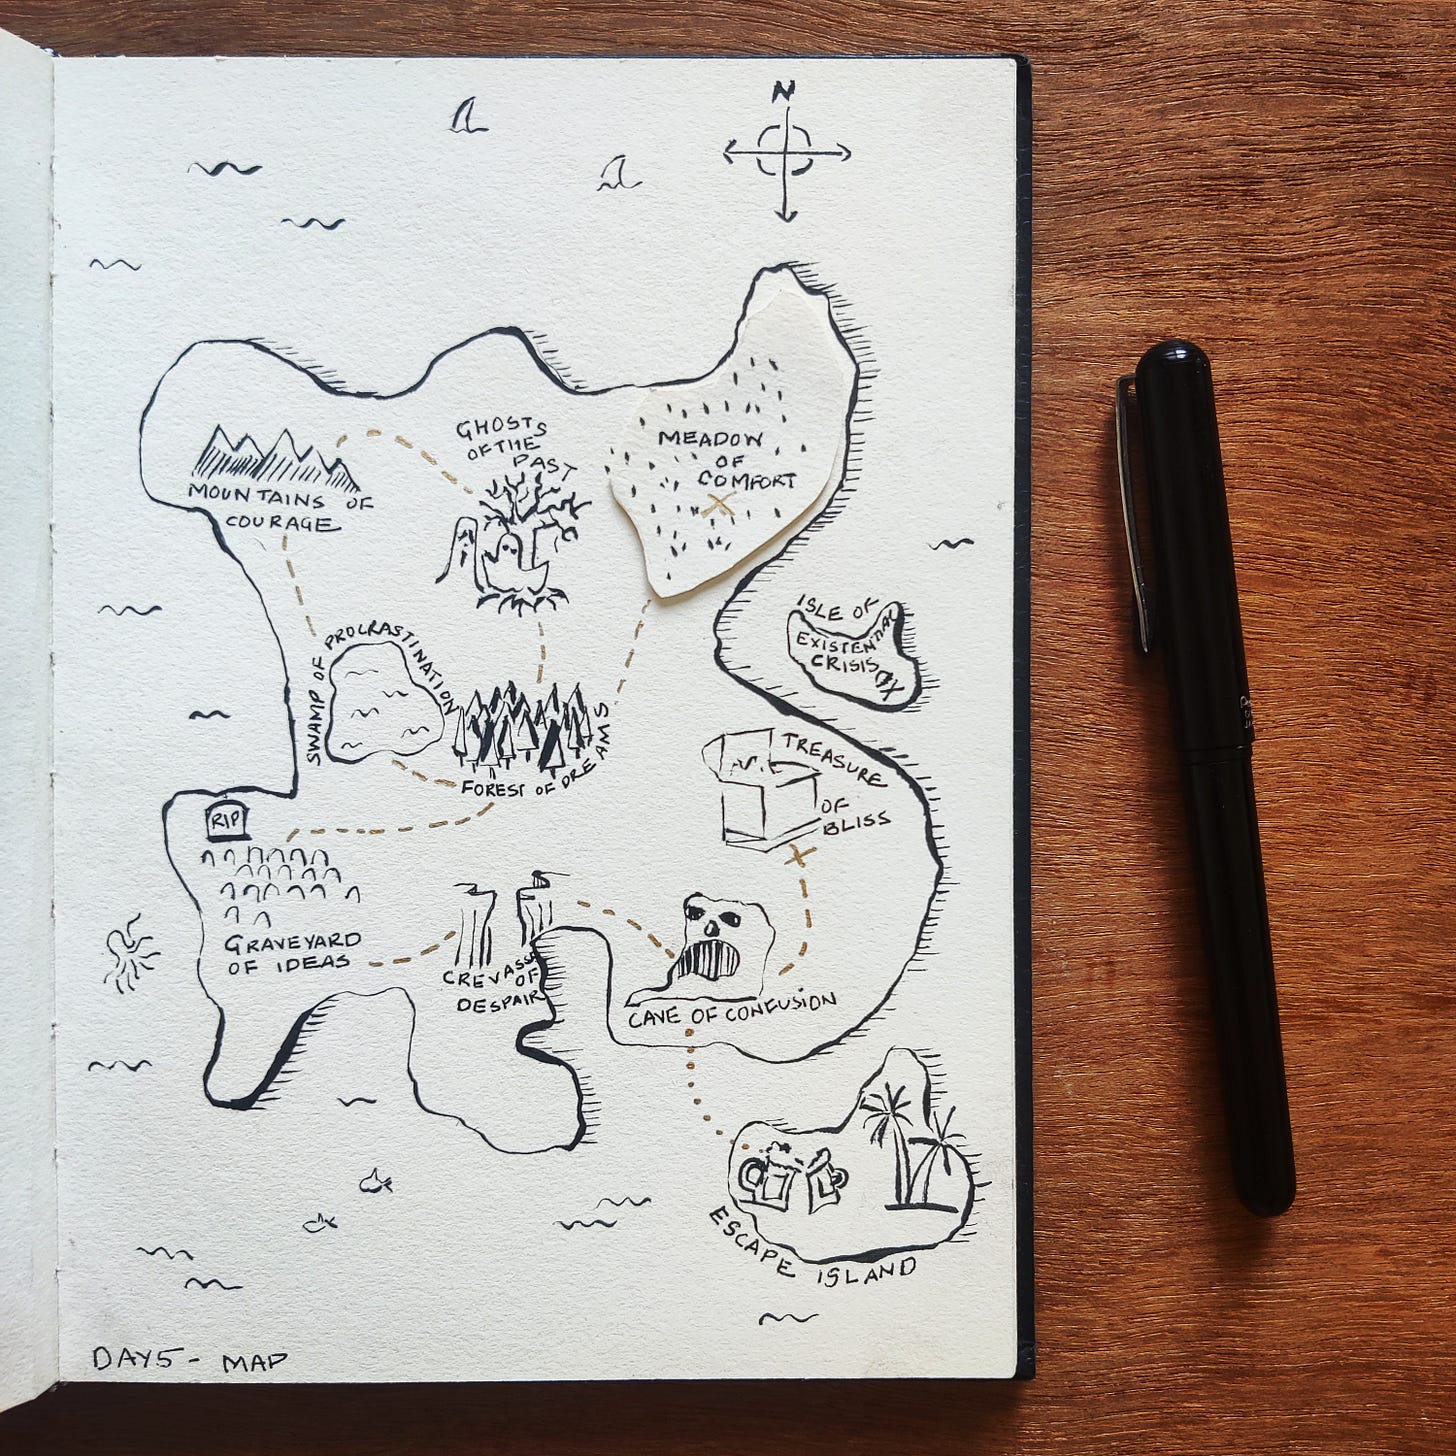 N
GHOSTS
OF THE
PAST
MEADOW
OF
COMFORT
MOUNTAINS OF
COURAGE
ISLE OF
EXISTENTIAL
CRISIS
SWAMP OF PROCRASTINATION
FOREST OF DREAMS
TREASURE
OF
BLISS
RIP
GRAVEYARD
OF IDEAS
CREVASSE
OF
DESPAIR
CAVE OF CONFUSION
ESCAPE ISLAND
DAY5- MAP